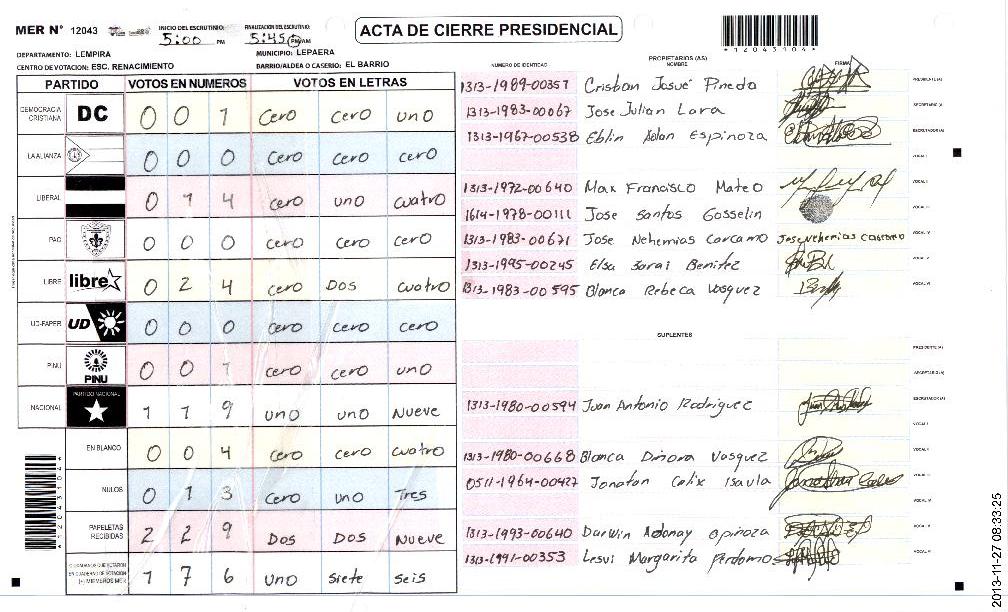 MER N° 12043
INICIO DEL ESCRUTINIO: 5:00 PM
FINALIZACIÓN DEL ESCRUTINIO: 5:45 PM AM
ACTA DE CIERRE PRESIDENCIAL
*12043104*
DEPARTAMENTO: LEMPIRA
MUNICIPIO: LEPAERA
CENTRO DE VOTACION: ESC. RENACIMIENTO
BARRIO/ALDEA O CASERIO: EL BARRIO
PARTIDO VOTOS EN NUMEROS VOTOS EN LETRAS
DEMOCRACIA CRISTIANA DC 0 0 1 cero cero uno
LA ALIANZA 0 0 0 cero cero cero
LIBERAL 0 1 4 cero uno cuatro
PAC 0 0 0 cero cero cero
LIBRE libre 0 2 4 cero Dos cuatro
UD-FAPER UD 0 0 0 cero cero cero
PINU PINU 0 0 1 cero cero uno
NACIONAL PARTIDO NACIONAL 1 1 9 uno uno Nueve
EN BLANCO 0 0 4 cero cero cuatro
NULOS 0 1 3 cero uno Tres
PAPELETAS RECIBIDAS 2 2 9 Dos Dos Nueve
CIUDADANOS QUE VOTARON EN CUADERNO DE VOTACION (+) MIEMBROS MER 1 7 6 uno siete seis
*12043104*
PROPIETARIOS (AS)
NUMERO DE IDENTIDAD NOMBRE FIRMA
1313-1989-00357 Cristian Josué Pineda PRESIDENTE (A)
1313-1983-00067 Jose Julian Lara SECRETARIO (A)
1313-1967-00538 Eblin Adan Espinoza ESCRUTADOR (A)
VOCAL I
1313-1972-00640 Max Francisco Mateo VOCAL II
1614-1978-00111 Jose Santos Gosselin VOCAL III
1313-1983-00671 Jose Nehemias Carcamo Jose Nehemias Carcamo VOCAL IV
1313-1995-00245 Elsa Sarai Benitez VOCAL V
1313-1983-00595 Blanca Rebeca Vasquez VOCAL VI
SUPLENTES
PRESIDENTE (A)
SECRETARIO (A)
1313-1980-00594 Juan Antonio Rodriguez ESCRUTADOR (A)
VOCAL I
1313-1980-00668 Blanca Dinora Vasquez VOCAL II
0511-1964-00427 Jonatan Calix Isaula VOCAL III
VOCAL IV
1313-1993-00640 Darwin Adonay Opinoza VOCAL V
1313-1991-00353 Lesvi Margarita Perdomo VOCAL VI
2013-11-27 08:33:25